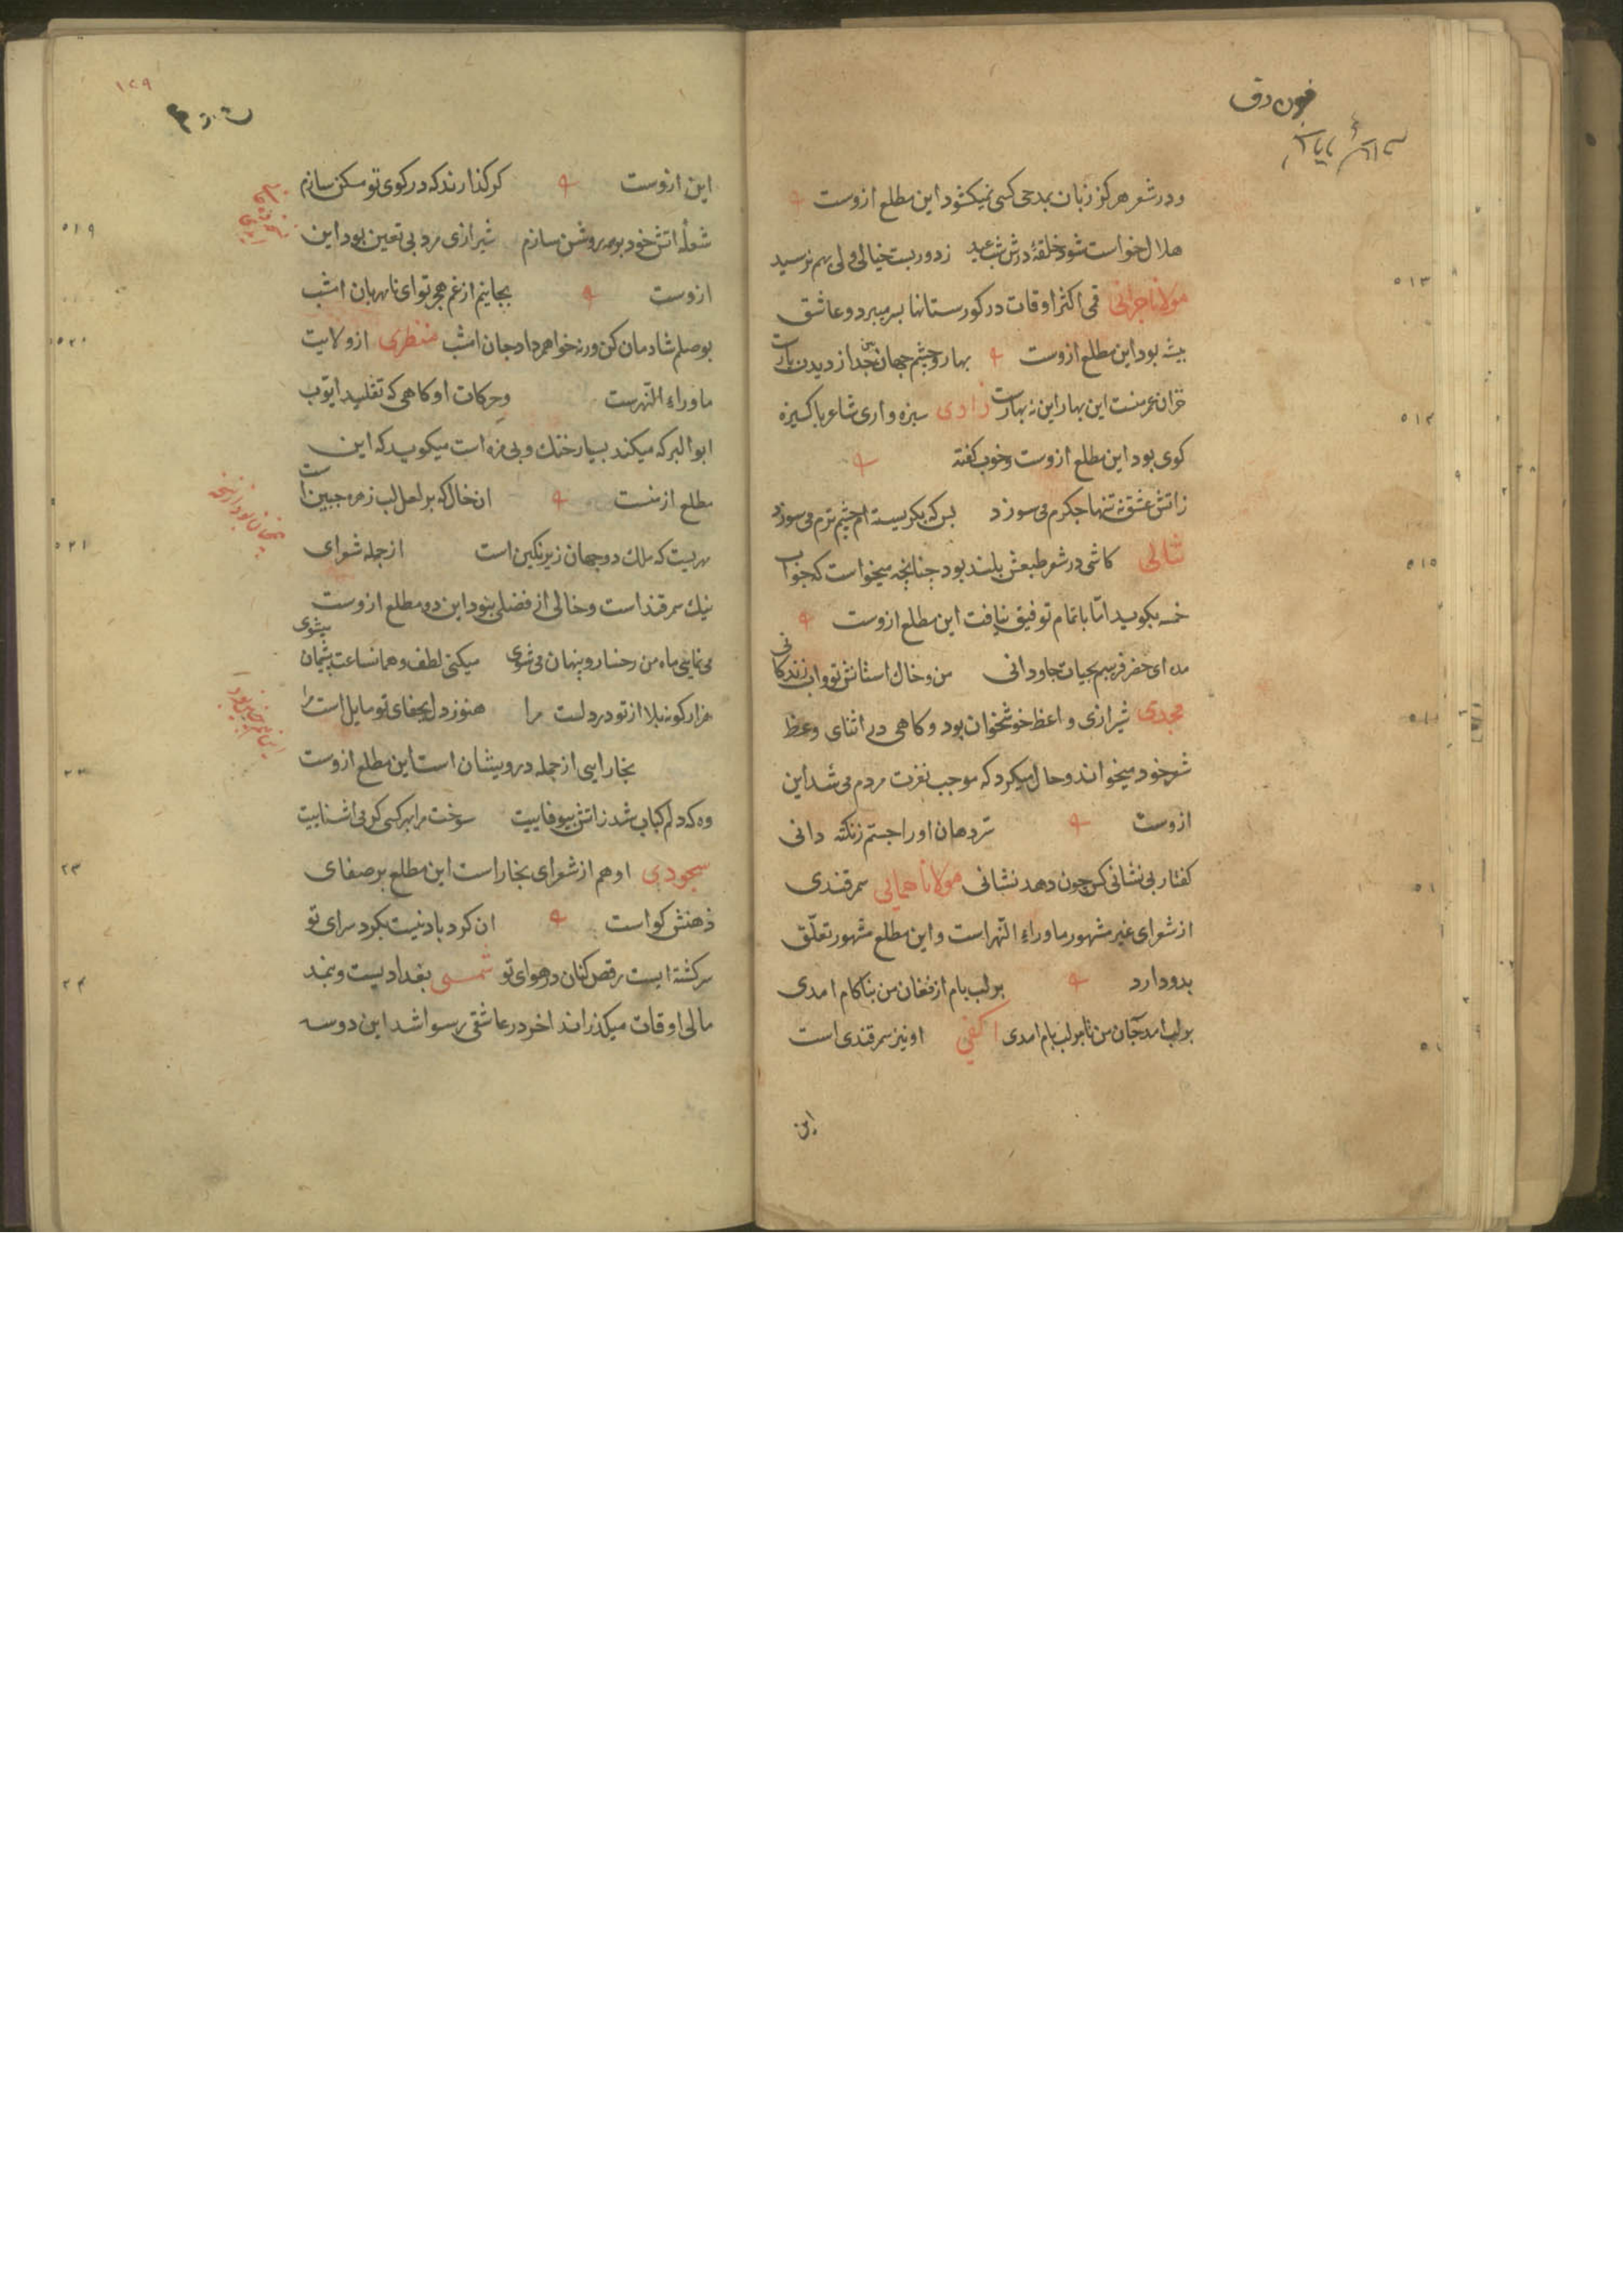 ودر شعر هرگز زبان بمدحی کسی نمیکشود این مطلع ازوست
هلال خواست شود حلقهٔ درش شب عید زدور بست خیالی ولی بهم نرسید
مولانا حرانی قمی اکثر اوقات در کورستانها بسر میبرد و عاشق
پیشه بود این مطلع ازوست بهار و چشم جهان بین جدا ز دیدن یارست
خزان عمر منست این بهار این نه بهارست زادی سبزه واری شاعر پاکیزه
کوی بود این مطلع ازوست و خوب گفته
زاتش عشق نه تنها جکرم می سوزد بس که بکریسته ام چشم ترم می سوزد
کاشی در شعر طبعش بلند بود چنانچه میخواست که جواب
خمسه بکوید اما باتمام توفیق نیافت این مطلع ازوست
مده ای خضر فریبم بحیات جاودانی من و خاک استانش تو واب زندکانی
مجدی شیرازی واعظ خوشخوان بود و کاهی در اثنای وعظ
شعر خود میخواند و حال میکرد که موجب نفرت مردم می شد این
ازوست سر دهان او را جستم زنکته دانی
کفتار بی نشانی کس چون دهد نشانی مولانا همایی سمرقندی
از شعرای غیر مشهور ماوراء النهر است و این مطلع مشهور تعلق
بدو دارد بر لب بام از فغان من بناکام امدی
بر لب امد جان من تا بر لب بام امدی او نیز سمرقندی است
این
۱۲۹
این ازوست کر کذارند که در کوی تو مسکن سازم
شعلهٔ اتش خود بر همه روشن سازم شیرازی مرد بی تعین بود این
ازوست بجانم از غم هجر تو ای نامهربان امشب
بوصلم شادمان کن ورنه خواهم داد جان امشب منظری از ولایت
ماوراء النهرست و حرکات او کاهی که تقلید ایوب
ابوالبرکه میکند بسیار خنک و بی مزه است میکوید که این
مطلع از منست ان خال که بر لعل لب زهره جبین است
مهریست که ملک دو جهان زیر نکین است از جمله شعرای
نیک سمرقند است و خالی از فضلی نبود این دو مطلع ازوست
می نمایی ماه من رخسار و پنهان می شوی میکنی لطف و همانساعت پشیمان میشوی
هزار کونه بلا از تو در دلست مرا هنوز دل بجفای تو مایل است مرا
بخارایی از جمله درویشان است این مطلع ازوست
وه که دلم کباب شد زاتش بیوفاییت سوخت مرا بهر کسی کرمی اشناییت
سجودی او هم از شعرای بخارا است این مطلع بر صفای
ذهنش کوا است ان کرد باد نیست بکرد سرای تو
سرکشته ایست رقص کنان در هوای تو شمسی بغدادیست و بنمد
مالی اوقات میکذراند اخر در عاشقی رسوا شد این دو سه